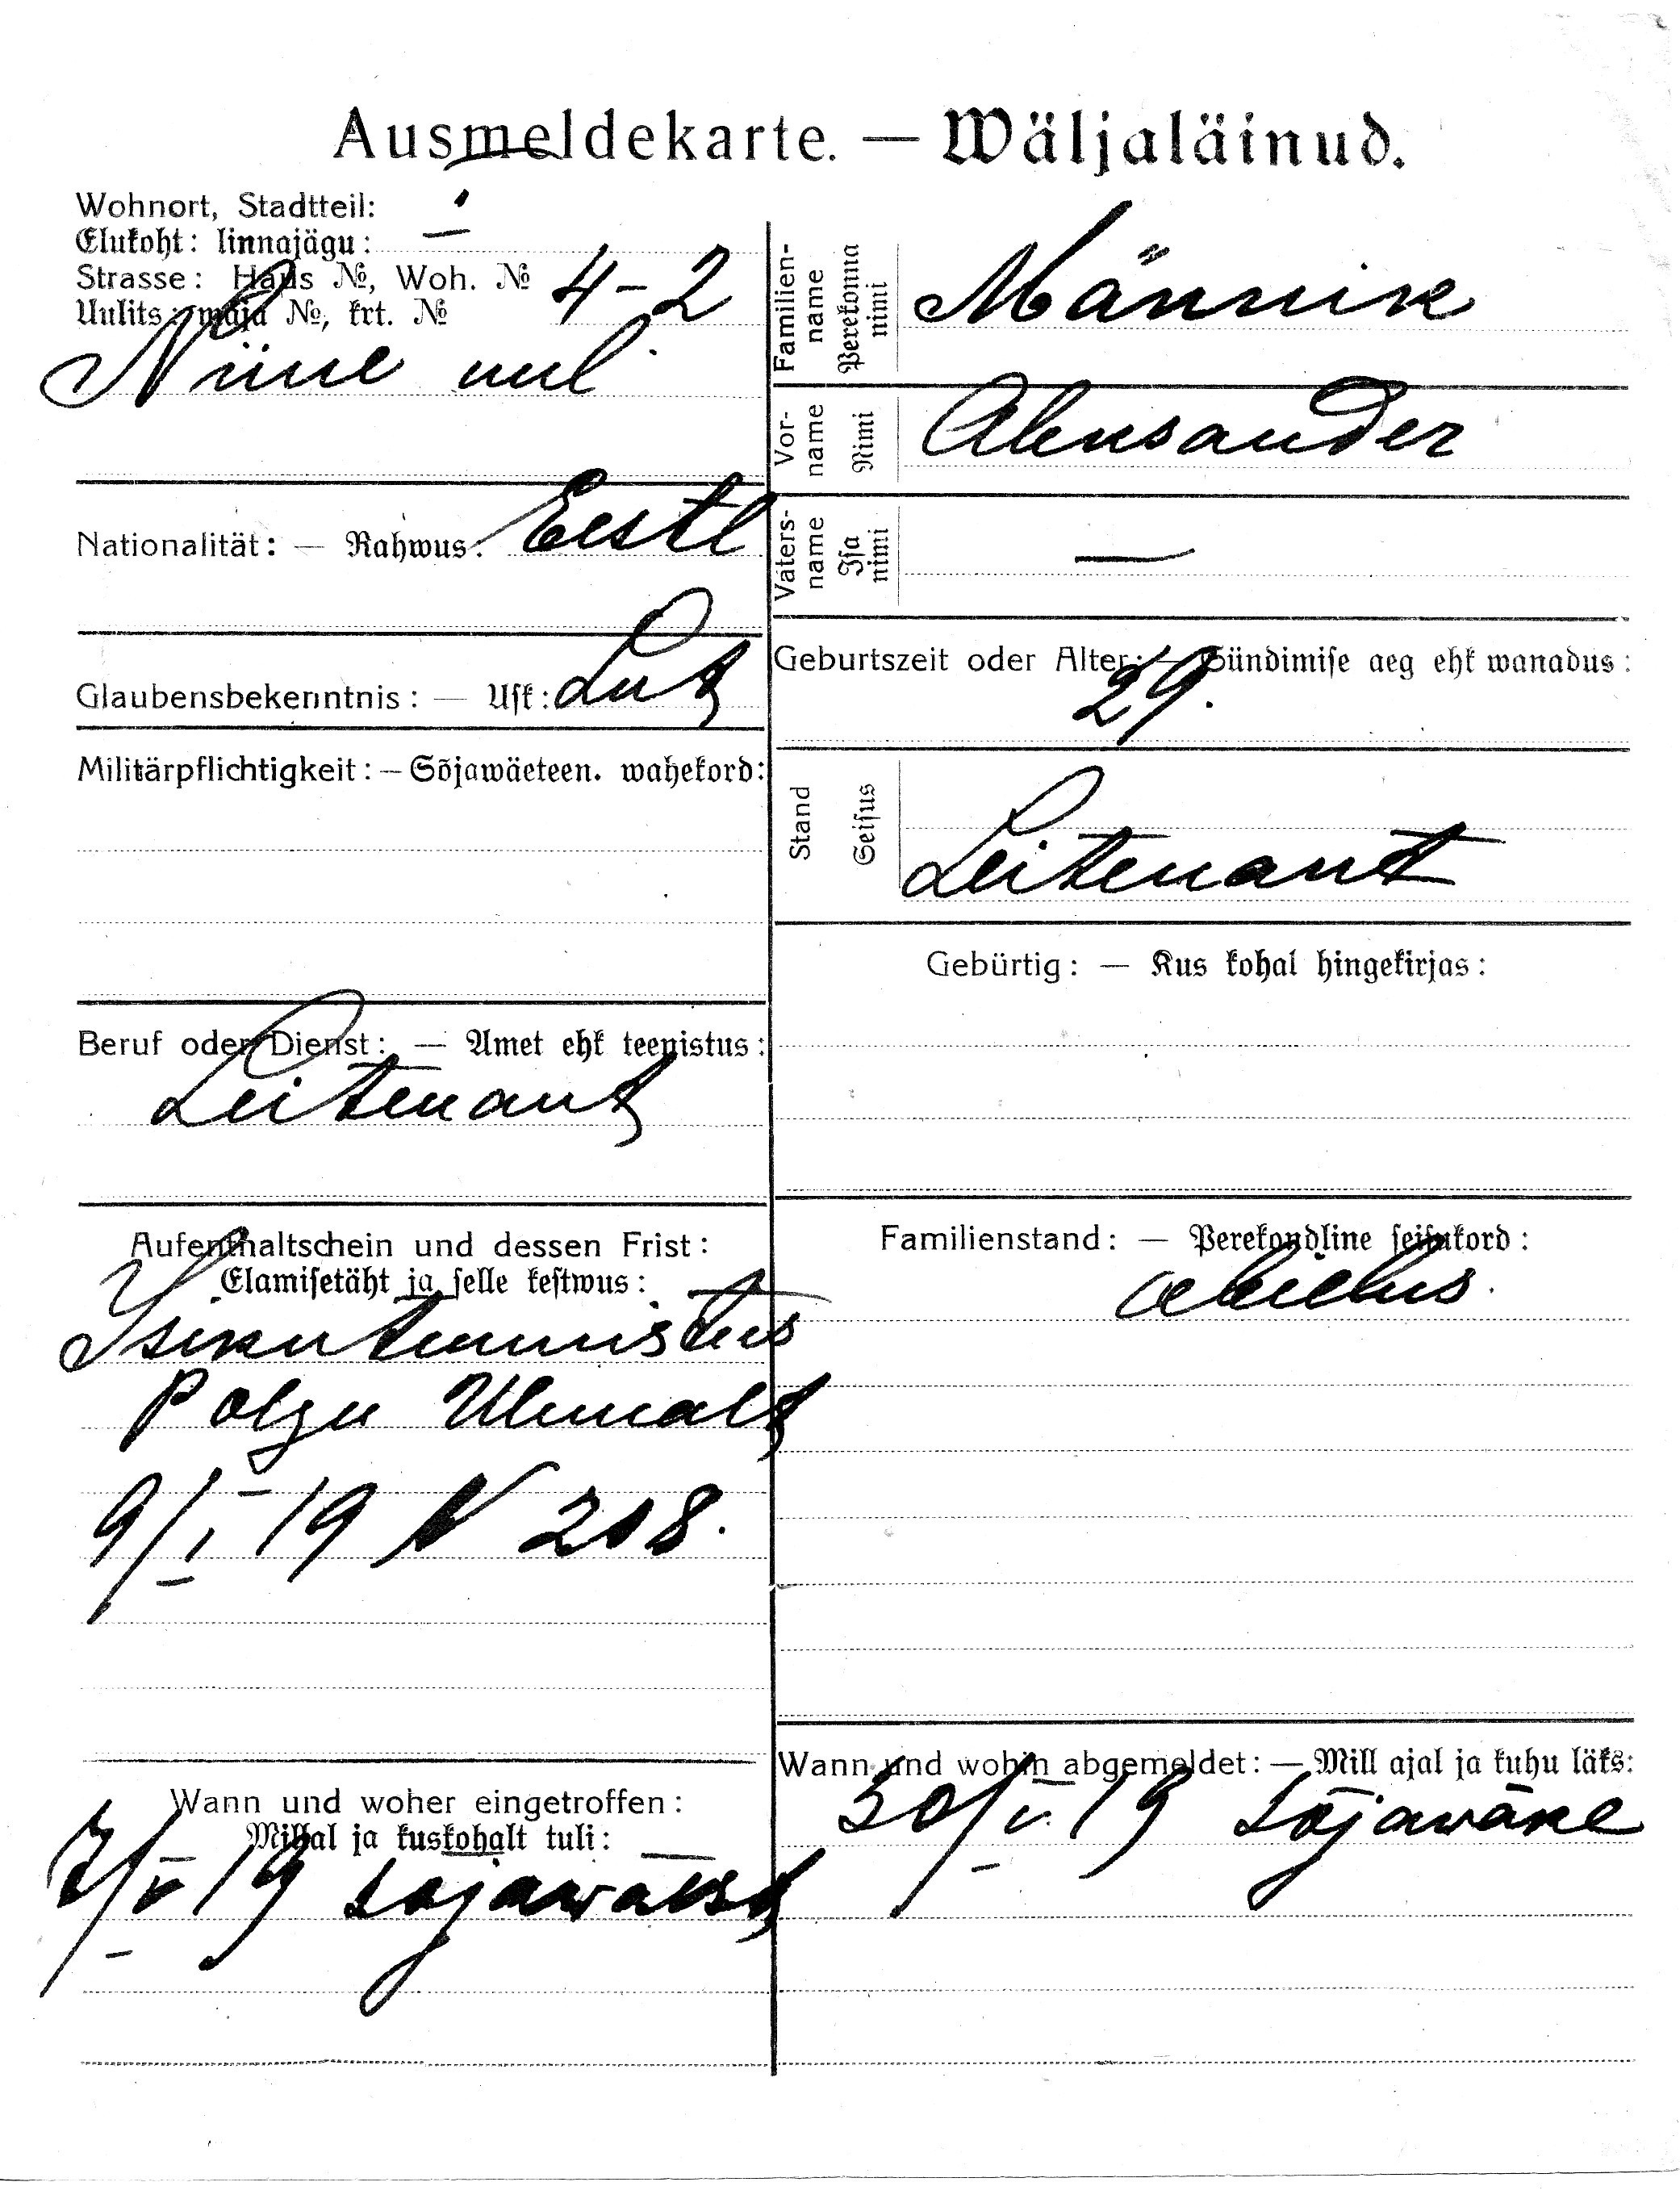 Ausmeldekarte. — Wäljaläinud.
Wohnort, Stadtteil: I
Elukoht: linnajägu:
Strasse: Haus №, Woh. № 4-2
Uulits: maja №, krt. №
Niine uul
Nationalität: — Rahwus: Eestl
Glaubensbekenntnis: — Usk: Lut
Militärpflichtigkeit: — Sõjawäeteen. wahekord:
Beruf oder Dienst: — Amet ehk teenistus:
Leitenant
Aufenthaltschein und dessen Frist:
Elamisetäht ja selle kestwus:
Isikutunnistus
Polgu Ulemalt
9/I 19 N 208.
Wann und woher eingetroffen:
Millal ja kuskohalt tuli:
7/V 19 sojawäest
Familien-name Perekonna nimi Männik
Vor-name Nimi Aleksander
Vaters-name Isa nimi —
Geburtszeit oder Alter: — Sündimise aeg ehk wanadus:
29.
Stand Seisus Leitenant
Gebürtig: — Kus kohal hingekirjas:
Familienstand: — Perekondline seisukord:
abielus.
Wann und wohin abgemeldet: — Mill ajal ja kuhu läks:
30/V 19 Sõjawäke